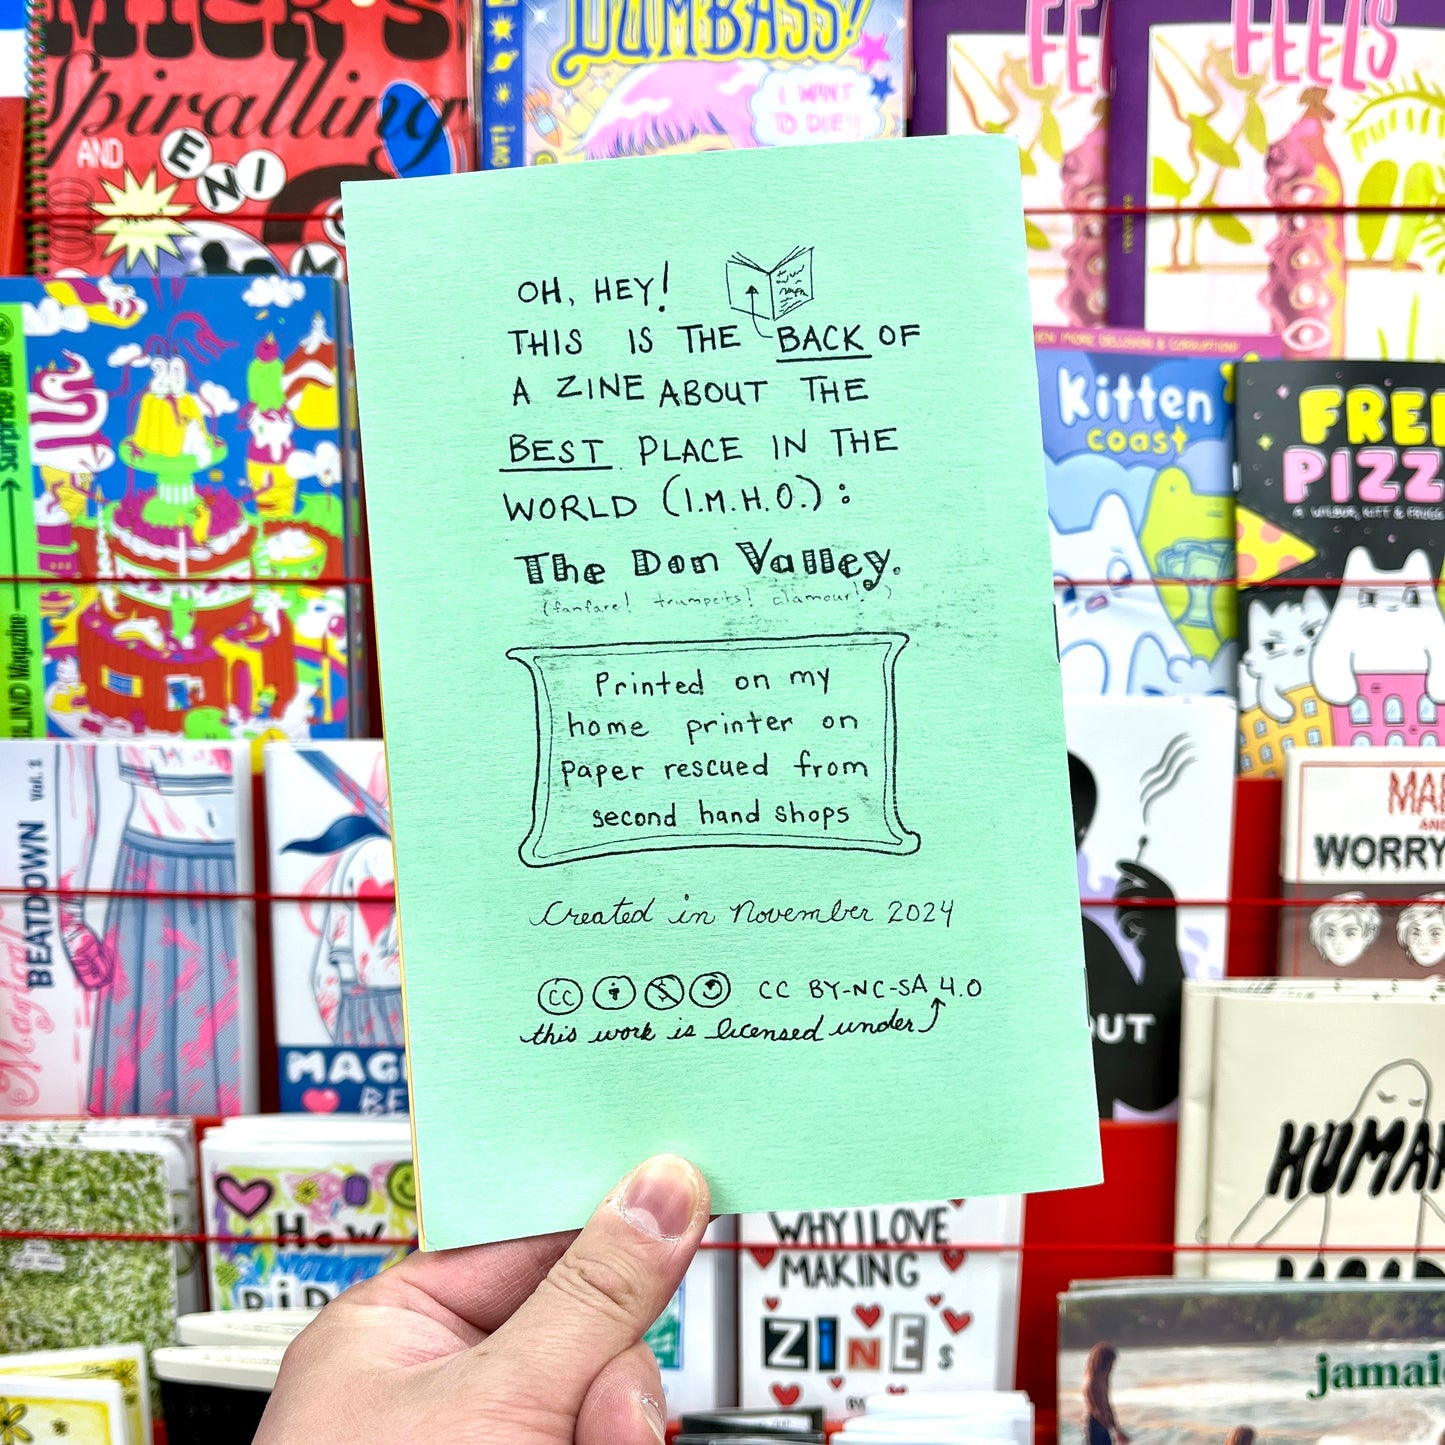 OH, HEY!
THIS IS THE BACK OF
A ZINE ABOUT THE
BEST PLACE IN THE
WORLD (I.M.H.O.):
The Don Valley.
(fanfare! trumpets! clamour!)
Printed on my
home printer on
paper rescued from
second hand shops
Created in November 2024
CC BY-NC-SA 4.0
this work is licensed under
Spiralling
AND
ENI
DUMBASS!
I WANT
TO DIE!!
OUT!
FEELS
20
Surprise issue
BLIND Magazine
Kitten
coast
FREE
PIZZ
BEATDOWN Vol. 1
MAG
BE
MA
AND
WORRY
OUT
HUMA
HOW
WHY I LOVE
MAKING
ZINES
jamai